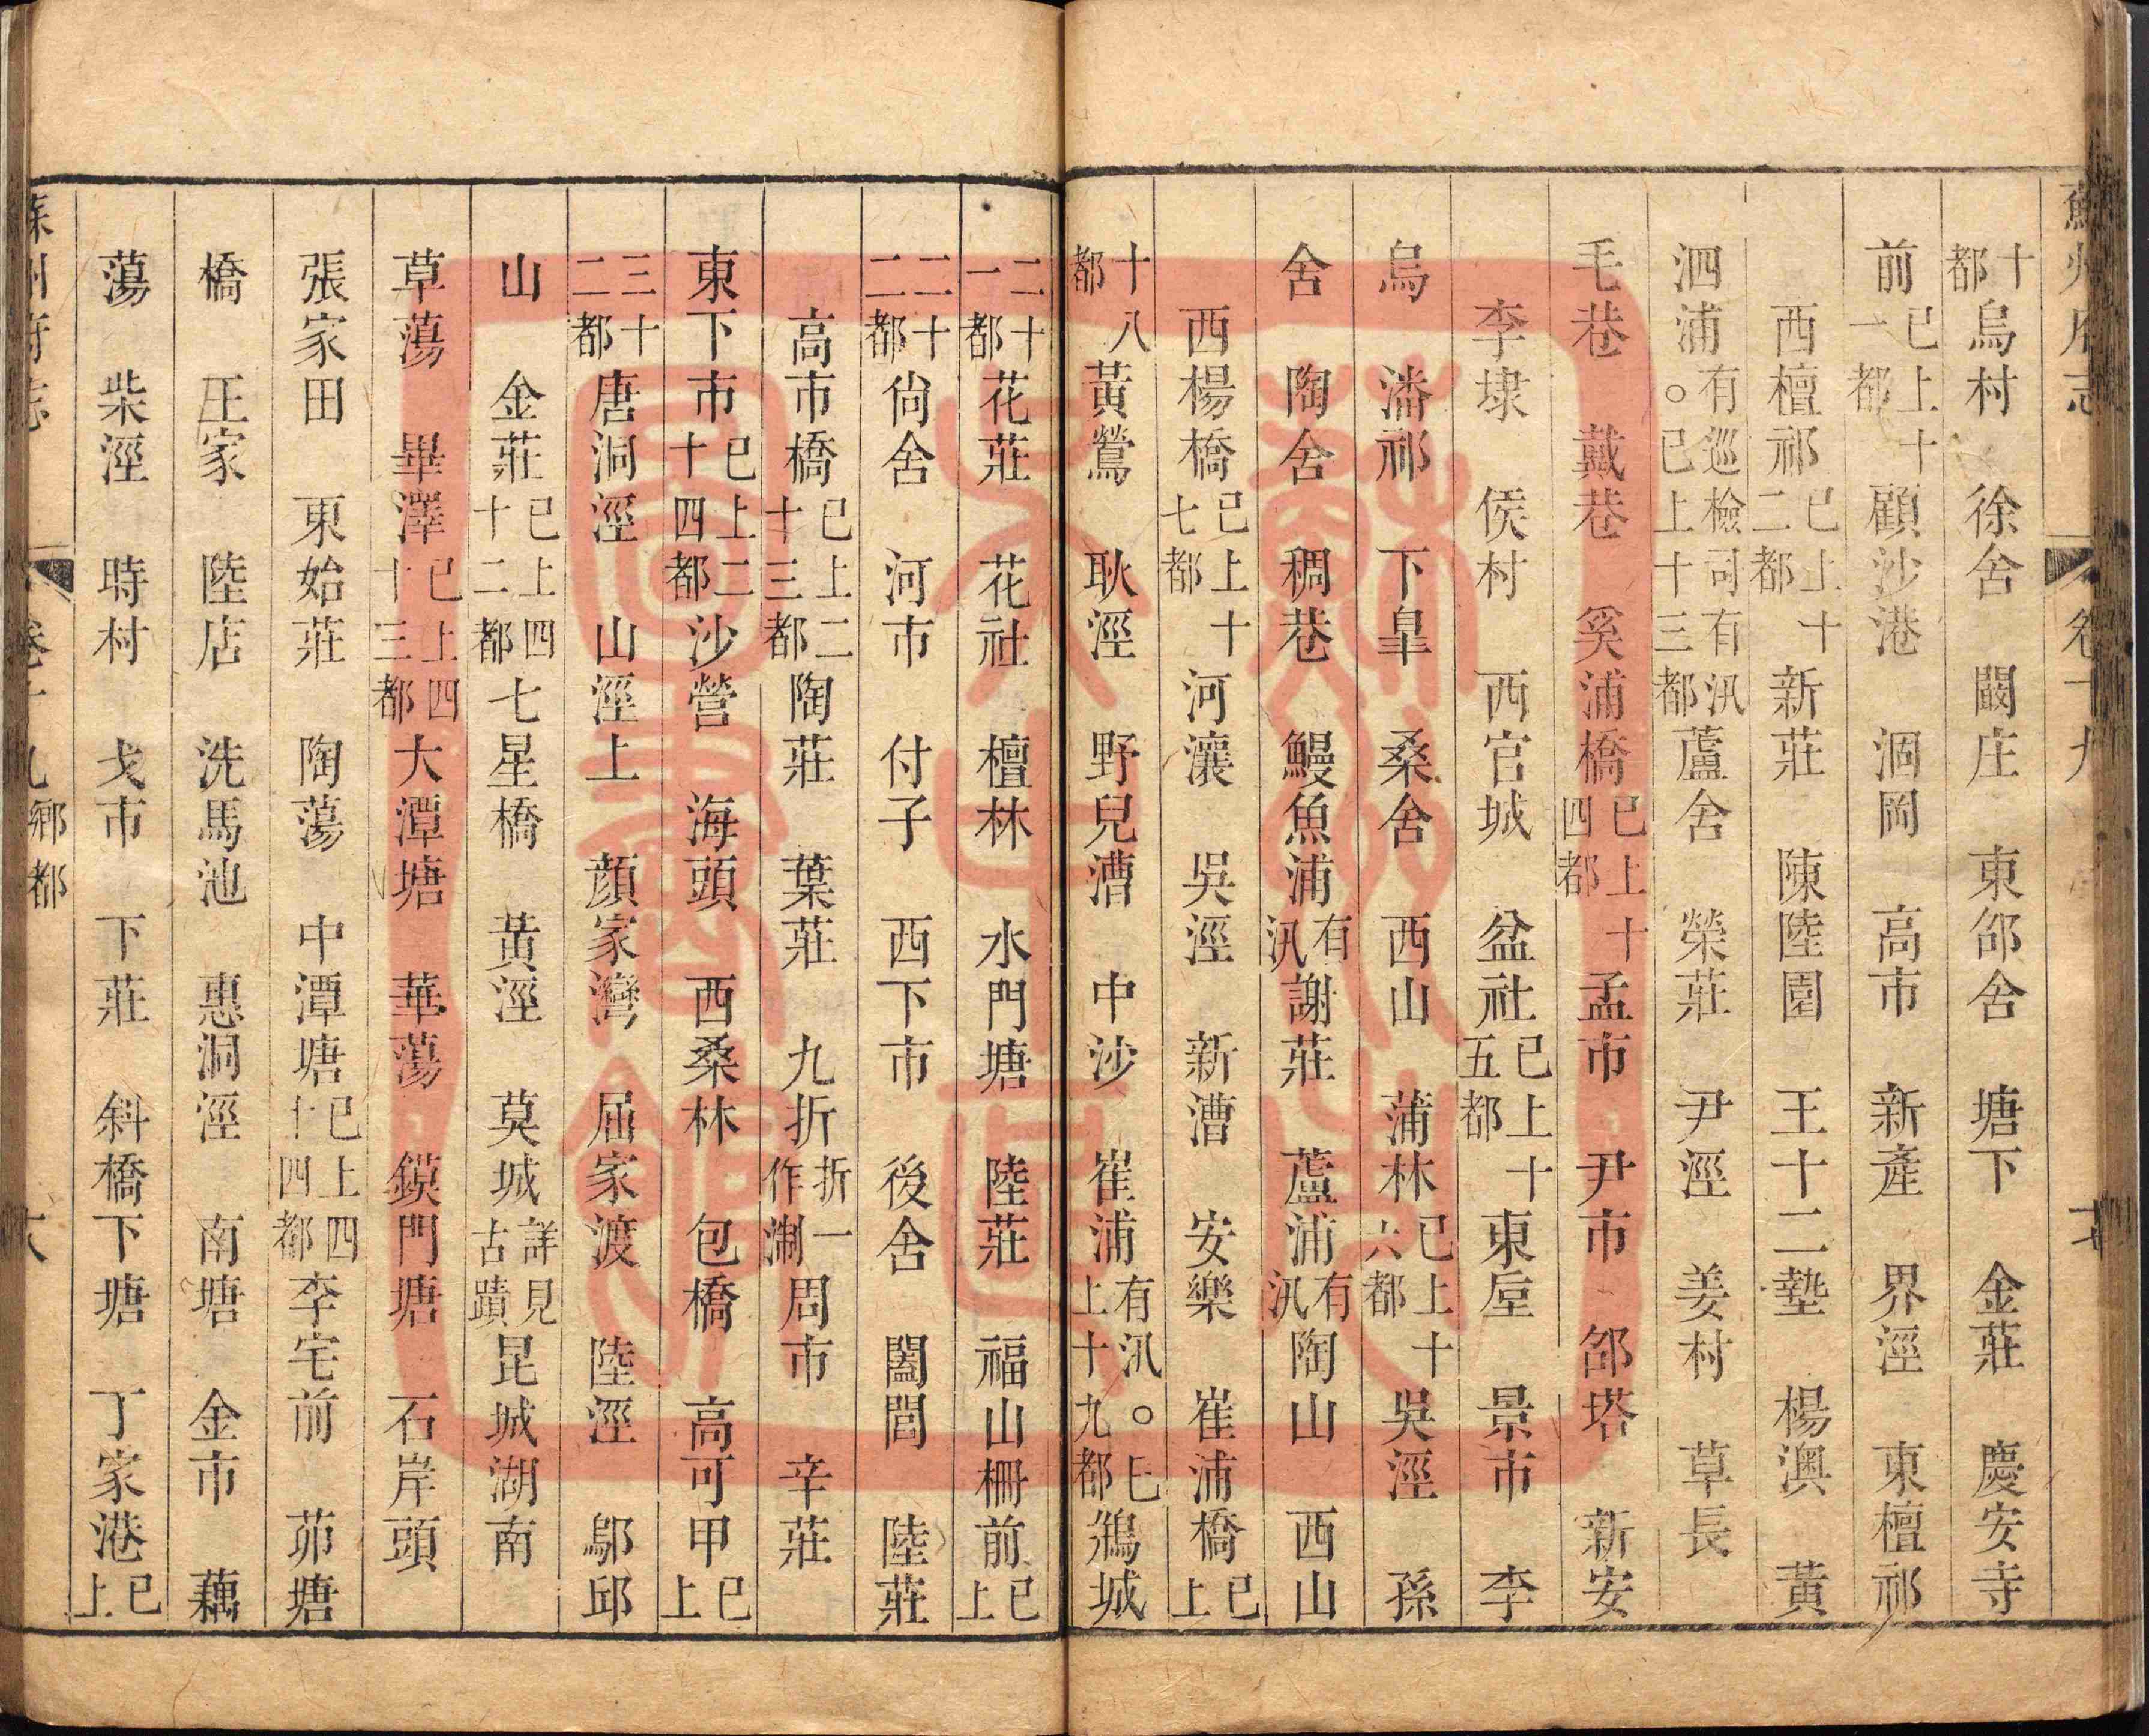 蘇州府志 卷十九
十都 烏村 徐舍 闞庄 東邰舍 塘下 金莊 慶安寺
前 已上十一都 顧沙港 涸岡 高市 新產 界涇 東檀祁
西檀祁 已上十二都 新莊 陳陸園 王十二墊 楊澳 黃
泗浦 有巡檢司有汛。已上十三都 蘆舍 榮莊 尹涇 姜村 草長
毛巷 戴巷 奚浦橋 已上十四都 孟市 尹市 邰塔 新安
李埭 侯村 西官城 盆社 已上十五都 東垕 景市 李
烏 潘祁 下皐 桑舍 西山 蒲林 已上十六都 吳涇 孫
舍 陶舍 稠巷 鰻魚浦 有汛 謝莊 蘆浦 有汛 陶山 西山
西楊橋 已上十七都 河瀼 吳涇 新漕 安樂 崔浦橋 已上
十八都 黃鶯 耿涇 野兒漕 中沙 崔浦 有汛。已上十九都 鵶城
二十一都 花莊 花社 檀林 水門塘 陸莊 福山柵前 已上
二十二都 尙舍 河市 付子 西下市 後舍 闔閭 陸莊
高市橋 已上二十三都 陶莊 葉莊 九折 折一作淛 周市 辛莊
東下市 已上二十四都 沙營 海頭 西桑林 包橋 高可甲 已上
三十二都 唐洞涇 山涇上 顏家灣 屈家渡 陸涇 鄔邱
山 金莊 已上四十二都 七星橋 黃涇 莫城 詳見古蹟 昆城湖南
草蕩 畢澤 已上四十三都 大潭塘 華蕩 鏌門塘 石岸頭
張家田 東始莊 陶蕩 中潭塘 已上四十四都 李宅前 茆塘
橋 王家 陸店 洗馬池 惠洞涇 南塘 金市 藕
蕩 柴涇 時村 戈市 下莊 斜橋下塘 丁家港 已上
蘇州府志 卷十九 鄉都